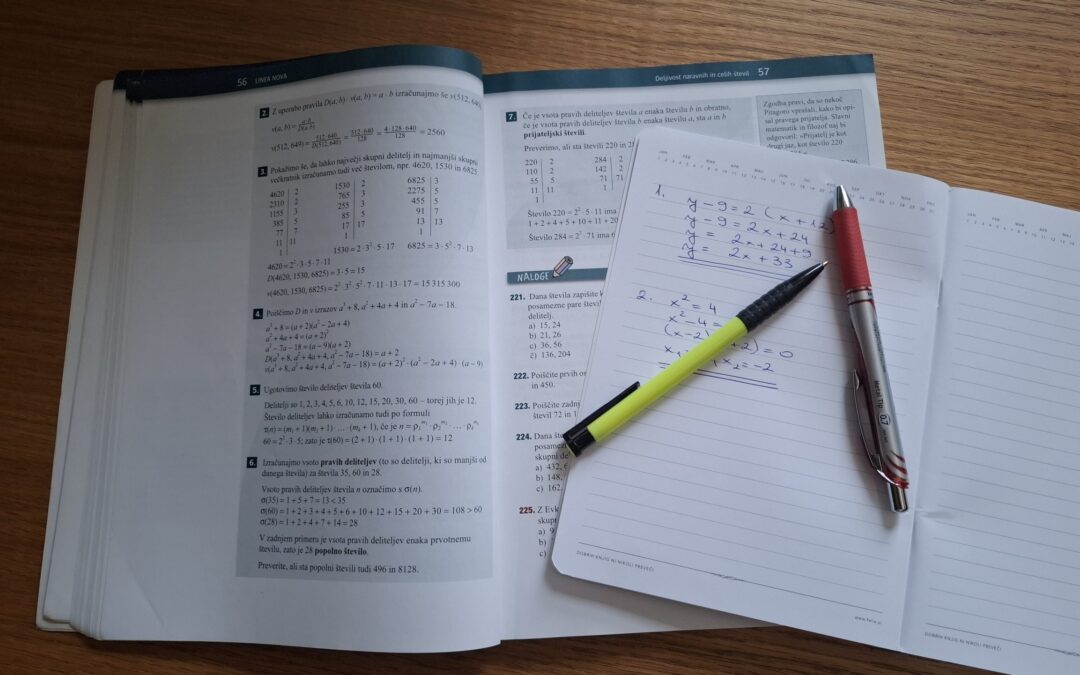 56 LINEA NOVA
2. Z uporabo pravila D(a, b) · v(a, b) = a · b izračunajmo še v(512, 640)
v(a, b) = a·b / D(a, b)
v(512, 649) = 512·640 / D(512, 640) = 512·640 / 128 = 4·128·640 / 128 = 2560
3. Pokažimo še, da lahko največji skupni delitelj in najmanjši skupni
večkratnik izračunamo tudi več številom, npr. 4620, 1530 in 6825.
4620 | 2 1530 | 2 6825 | 3
2310 | 2 765 | 3 2275 | 5
1155 | 3 255 | 3 455 | 5
385 | 5 85 | 5 91 | 7
77 | 7 17 | 17 13 | 13
11 | 11 1 | 1 |
1 | 1530 = 2·3²·5·17 6825 = 3·5²·7·13
4620 = 2²·3·5·7·11
D(4620, 1530, 6825) = 3·5 = 15
v(4620, 1530, 6825) = 2²·3²·5²·7·11·13·17 = 15 315 300
4. Poiščimo D in v izrazov a³ + 8, a² + 4a + 4 in a² − 7a − 18.
a³ + 8 = (a + 2)(a² − 2a + 4)
a² + 4a + 4 = (a + 2)²
a² − 7a − 18 = (a − 9)(a + 2)
D(a³ + 8, a² + 4a + 4, a² − 7a − 18) = a + 2
v(a³ + 8, a² + 4a + 4, a² − 7a − 18) = (a + 2)² · (a² − 2a + 4) · (a − 9)
5. Ugotovimo število deliteljev števila 60.
Delitelji so 1, 2, 3, 4, 5, 6, 10, 12, 15, 20, 30, 60 – torej jih je 12.
Število deliteljev lahko izračunamo tudi po formuli
τ(n) = (m₁ + 1)(m₂ + 1) · … · (mₖ + 1), če je n = p₁^m₁ · p₂^m₂ · … · pₖ^mₖ
60 = 2²·3·5; zato je τ(60) = (2 + 1) · (1 + 1) · (1 + 1) = 12
6. Izračunajmo vsoto pravih deliteljev (to so delitelji, ki so manjši od
danega števila) za števila 35, 60 in 28.
Vsoto pravih deliteljev števila n označimo s σ(n).
σ(35) = 1 + 5 + 7 = 13 < 35
σ(60) = 1 + 2 + 3 + 4 + 5 + 6 + 10 + 12 + 15 + 20 + 30 = 108 > 60
σ(28) = 1 + 2 + 4 + 7 + 14 = 28
V zadnjem primeru je vsota pravih deliteljev enaka prvotnemu
številu, zato je 28 popolno število.
Preverite, ali sta popolni števili tudi 496 in 8128.
Deljivost naravnih in celih števil 57
7. Če je vsota pravih deliteljev števila a enaka številu b in obratno,
če je vsota pravih deliteljev števila b enaka številu a, sta a in b
prijateljski števili.
Preverimo, ali sta števili 220 in
220 | 2 284 | 2
110 | 2 142 | 2
55 | 5 71 | 71
11 | 11 1
1
Število 220 = 2²·5·11 ima
1 + 2 + 4 + 5 + 10 + 11 + 20
Število 284 = 2²·71 ima
Zgodba pravi, da so nekoč
Pitagoro vprašali, kako bi opi-
sal pravega prijatelja. Slavni
matematik in filozof naj bi
odgovoril: »Prijatelj je kot
drugi jaz, kot število 220
NALOGE
221. Dana števila zapišite
posamezne pare
delitelj.
a) 15, 24
b) 21, 26
c) 36, 56
č) 136, 204
222. Poiščite prvih
in 450.
223. Poiščite
števil 72 in
224. Dana
posamezne
skupni
a) 432,
b) 148,
c) 162,
225. Z
a) 9
b)
c)
1.
y − 9 = 2 (x + 12)
y − 9 = 2x + 24
y = 2x + 24 + 9
y = 2x + 33
2. x² = 4
x² − 4 =
(x − 2) + 2) = 0
x₂ = −2
Metal Tip 0.7
DOBRIH KNJIG NI NIKOLI PREVEČ!
www.felix.si
DOBRIH KNJIG NI NIKOLI PREVEČ!